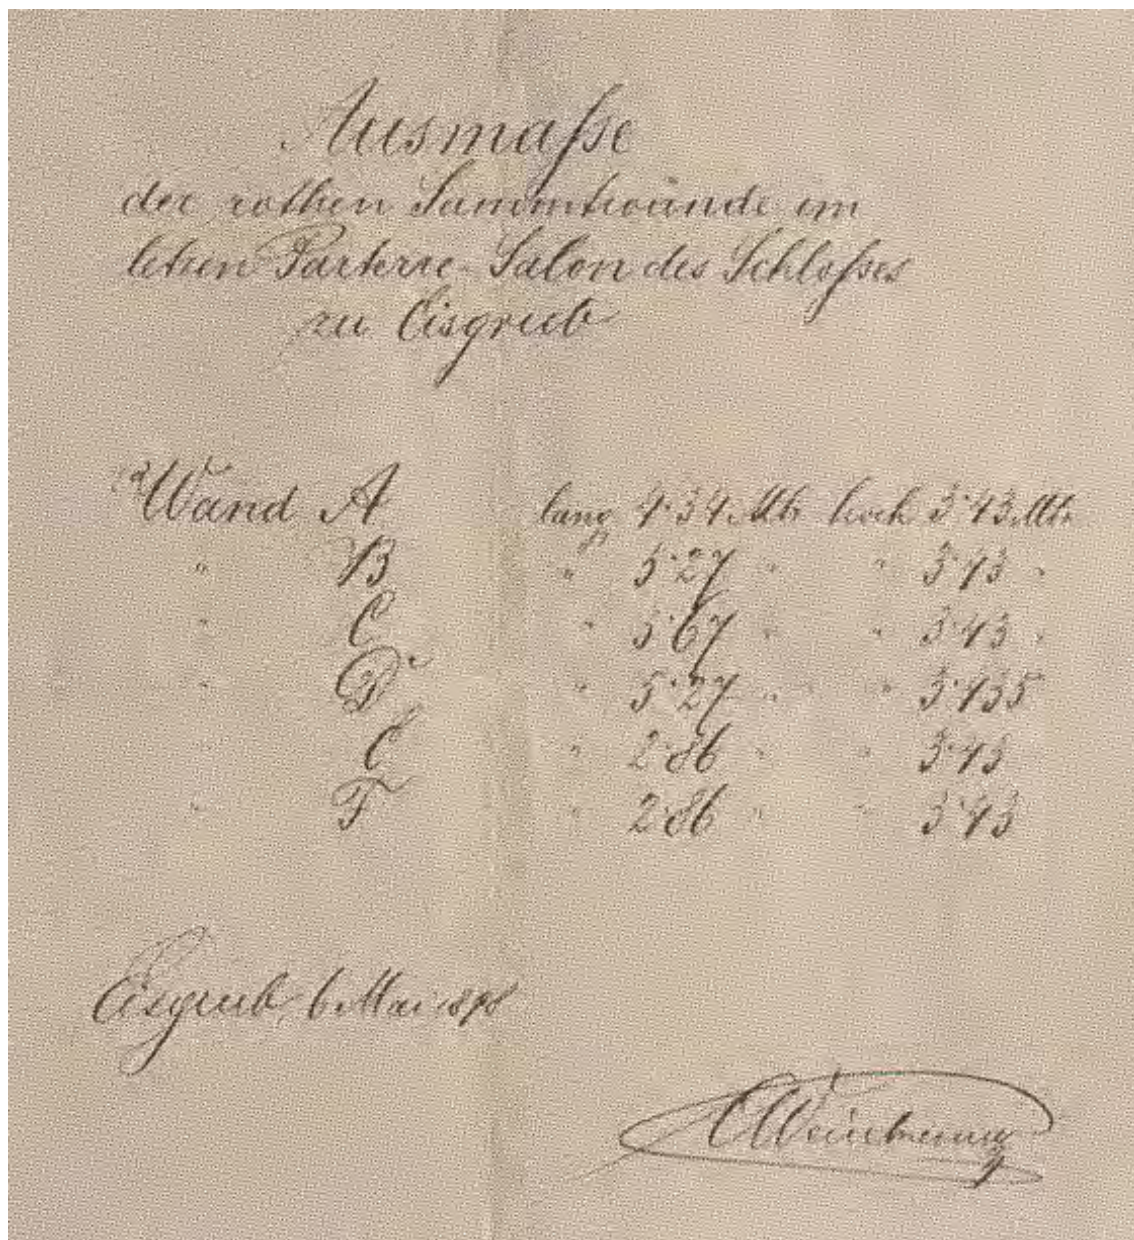 Ausmaße
der rothen Sammtwände im
Parterre-Salon des Schloßes
zu Eisgrub
Wand A lang 4·34 Mtr hoch 3·43 Mtr
" B " 5·27 " " 3·43 "
" C " 5·67 " " 3·43 "
" D " 5·27 " " 3·435
E " 2·86 " " 3·43
" F " 2·86 " " 3·43
Eisgrub, 6. Mai